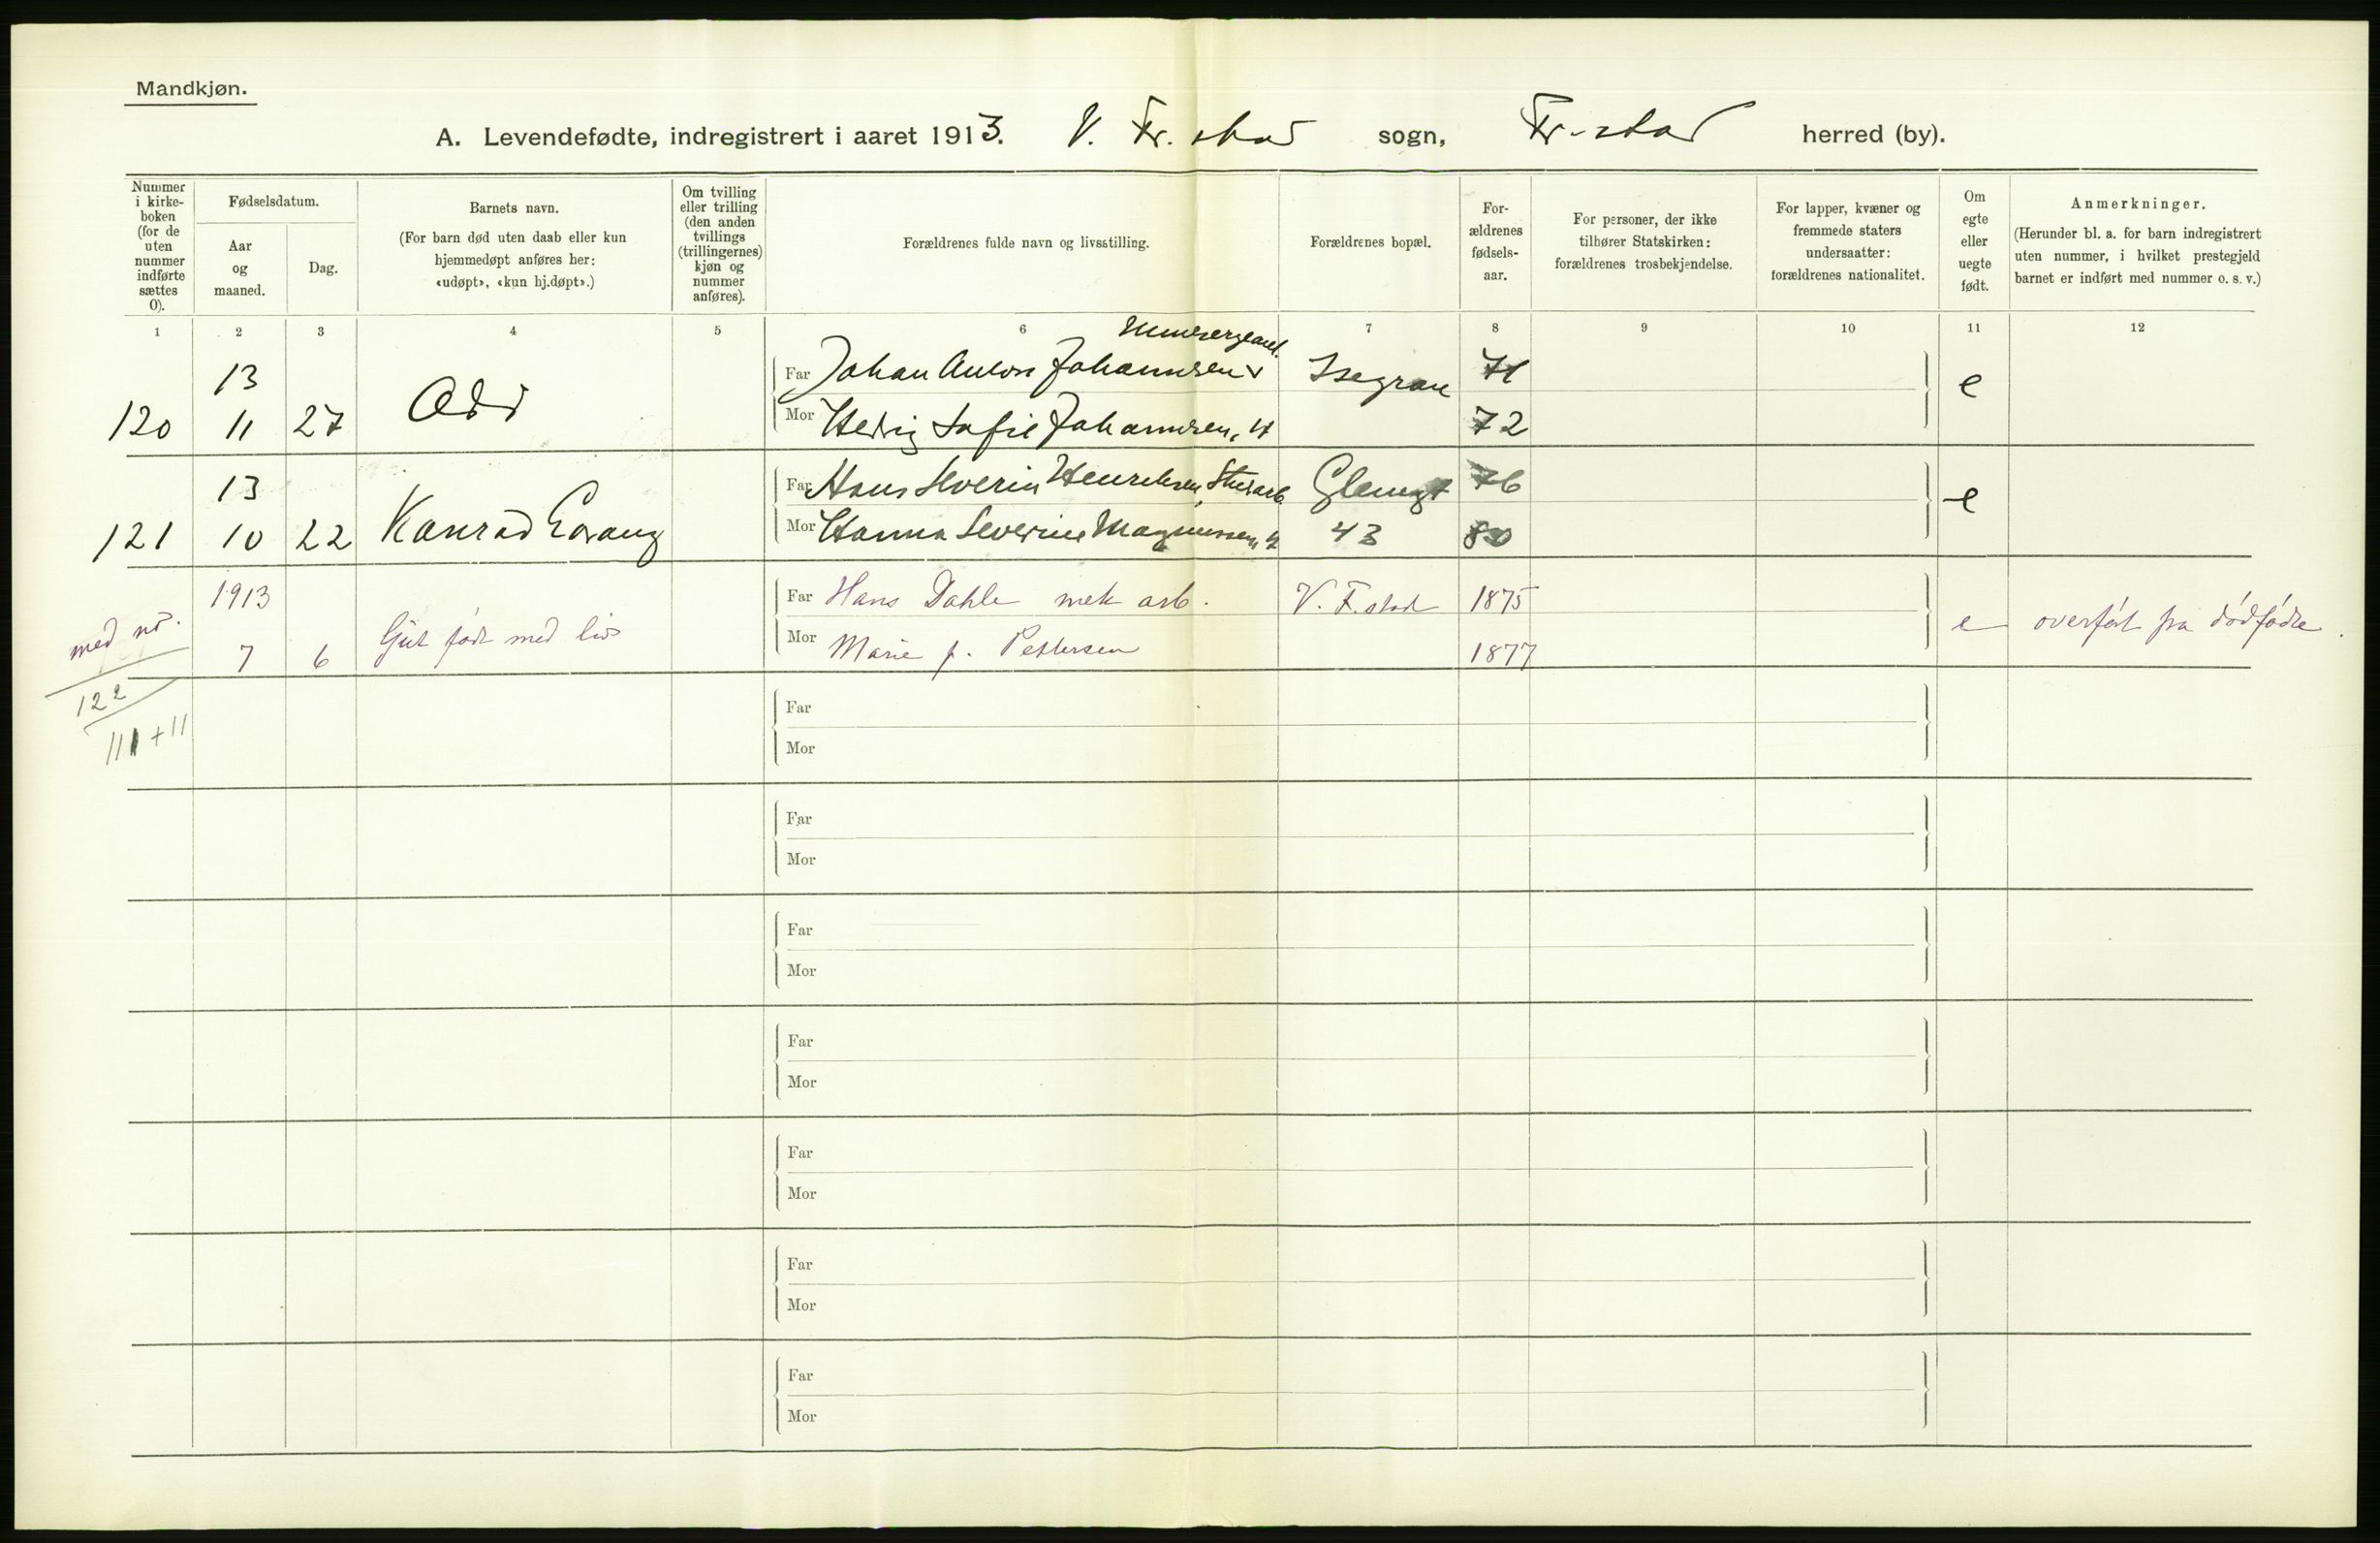 Mandkjøn.
A. Levendefødte, indregistrert i aaret 1913. V. Fr.stad sogn, Fr-stad herred (by).
Nummer i kirke-boken (for de uten nummer indførte sættes 0).
Fødselsdatum.
Aar og maaned.
Dag.
Barnets navn.
(For barn død uten daab eller kun hjemmedøpt anføres her: «udøpt», «kun hj.døpt».)
Om tvilling eller trilling (den anden tvillings (trillingernes) kjøn og nummer anføres).
Forældrenes fulde navn og livsstilling.
Forældrenes bopæl.
For-ældrenes fødsels-aar.
For personer, der ikke tilhører Statskirken: forældrenes trosbekjendelse.
For lapper, kvæner og fremmede staters undersaatter: forældrenes nationalitet.
Om egte eller uegte født.
Anmerkninger.
(Herunder bl. a. for barn indregistrert uten nummer, i hvilket prestegjeld barnet er indført med nummer o. s. v.)
1 2 3 4 5 6 7 8 9 10 11 12
13 Far Johan Anton Johannsen Isegran 71 e
120 11 27 Odd Mor Hedvig Sofie Johannsen, 72
13 Far Hans Severin Henriksen, Glemgt 76 e
121 10 22 Konrad Edvang Mor Hanna Severine Magnussen 43 80
1913 Far Hans Dahle mek arb. V. F.stad 1875
med nr. 7 6 Gut født med liv Mor Marie f. Pettersen 1877 e overført fra dødfødte
122
111+11
Far
Mor
Far
Mor
Far
Mor
Far
Mor
Far
Mor
Far
Mor
Far
Mor